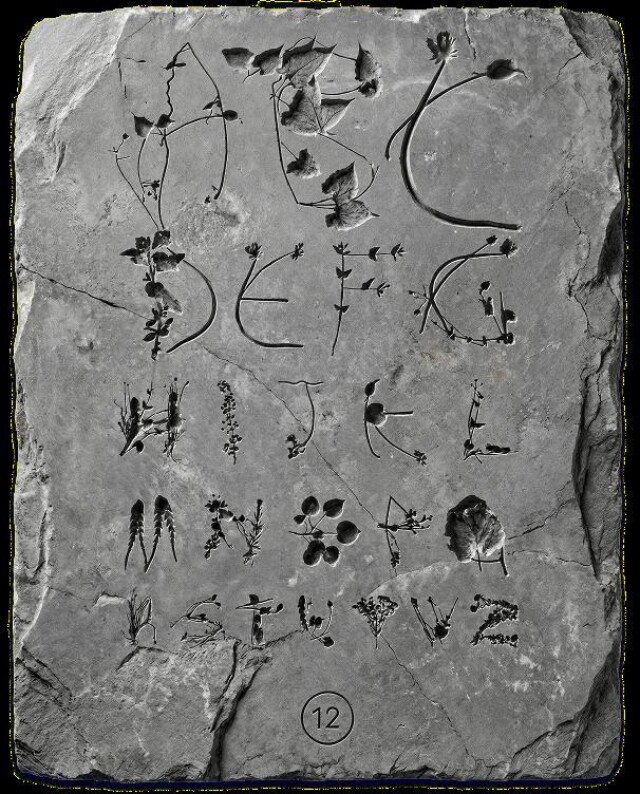 A B C
D E F G
H I J K L
M N O P Q
R S T U V W Z
12